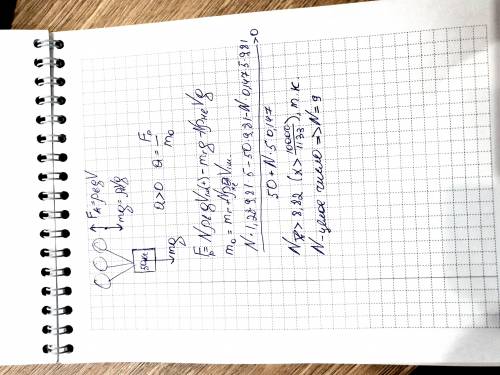 F_A = ρ_в g V
a > 0 a = F_р / m_0
50кг
mg
F_р = N ρ_в g V_ш(1) - m_г g - N ρ_не V g
m_0 = m_г + N ρ_не V_ш
N · 1,2 · 9,81 · 5 - 50 · 9,81 - N · 0,147 · 5 · 9,81
50 + N · 5 · 0,147
> 0
N > 8,82 (x > 10000/1133), т.к.
N - целое число => N = 9